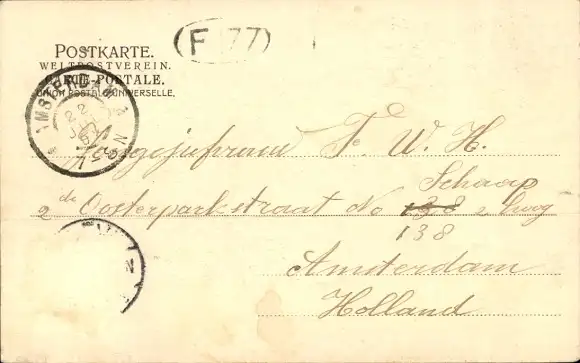 (F 77)
POSTKARTE.
WELTPOSTVEREIN.
CARTE POSTALE.
UNION POSTALE UNIVERSELLE,
AMSTERDAM
Mejufvrouw F. W. H.
Schaap
2de Oosterparkstraat No 138 2 hoog
138
Amsterdam
Holland